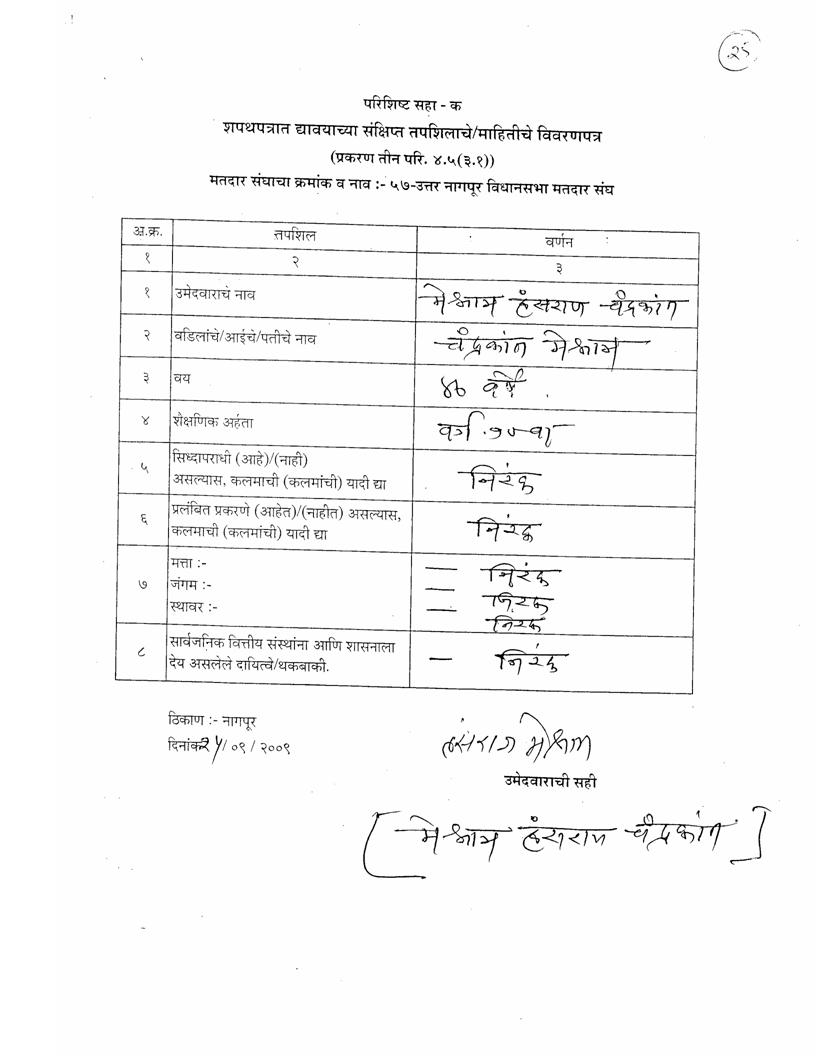 २५
परिशिष्ट सहा - क
शपथपत्रात द्यावयाच्या संक्षिप्त तपशिलाचे/माहितीचे विवरणपत्र
(प्रकरण तीन परि. ४.५(३.१))
मतदार संघाचा क्रमांक व नाव :- ५७-उत्तर नागपूर विधानसभा मतदार संघ
अ.क्र. तपशिल वर्णन :
१ २ ३
१ उमेदवाराचे नाव मेश्राम हंसराज चंद्रकांत
२ वडिलांचे/आईचे/पतीचे नाव चंद्रकांत मेश्राम
३ वय ४७ वर्षे .
४ शैक्षणिक अर्हता वर्ग
५ सिध्दापराधी (आहे)/(नाही)
असल्यास, कलमाची (कलमांची) यादी द्या निरंक
६ प्रलंबित प्रकरणे (आहेत)/(नाहीत) असल्यास,
कलमाची (कलमांची) यादी द्या निरंक
७ मत्ता :- — निरंक
जंगम :- — निरंक
स्थावर :- — निरंक
८ सार्वजनिक वित्तीय संस्थांना आणि शासनाला
देय असलेले दायित्वे/थकबाकी. — निरंक
ठिकाण :- नागपूर
दिनांक २५/ ०९ / २००९
हंसराज मेश्राम
उमेदवाराची सही
[मेश्राम हंसराज चंद्रकांत]